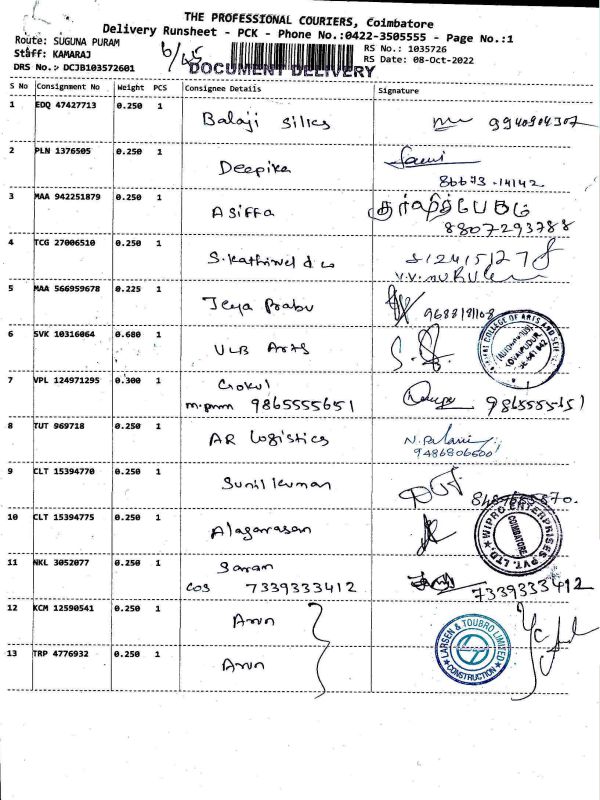 THE PROFESSIONAL COURIERS, Coimbatore
Delivery Runsheet - PCK - Phone No.:0422-3505555 - Page No.:1
Route: SUGUNA PURAM
RS No.: 1035726
Staff: KAMARAJ
RS Date: 08-Oct-2022
DRS No.: DCJB103572601
DOCUMENT DELIVERY
S No Consignment No Weight PCS Consignee Details Signature
1 EDQ 47427713 0.250 1 Balaji Silks 9940904307
2 PLN 1376505 0.250 1 Deepika
86673-14142
3 MAA 942251879 0.250 1 Asiffa
8807293788
4 TCG 27006510 0.250 1 S. Kathirvel & co
5 MAA 566959678 0.225 1 Jeya Prabu
6 SVK 10316064 0.680 1 VLB Arts
7 VPL 124971295 0.300 1 Gokul
9865555651
8 TUT 969718 0.250 1 AR Logistics
9486806600
9 CLT 15394770 0.250 1 Sunil kumar
10 CLT 15394775 0.250 1 Alagarasan
WIPRO ENTERPRISES PVT. LTD.
COIMBATORE
11 NKL 3052077 0.250 1 Saran
COS 7339333412 7339333412
12 KCM 12590541 0.250 1 Arun
LARSEN & TOUBRO LIMITED
CONSTRUCTION
13 TRP 4776932 0.250 1 Arun